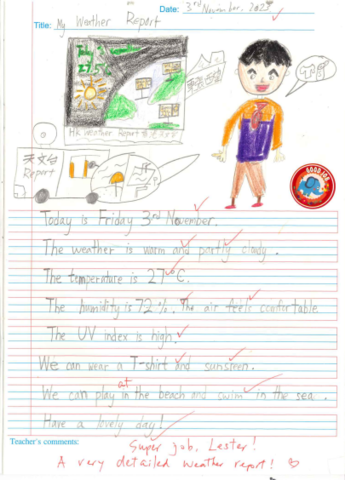 Date: 3rd November, 2023
Title: My Weather Report
27.5
HK Weather Report
天文台
Report
GOOD JOB
Today is Friday 3rd November.
The weather is warm and partly clody.
The temperature is 27°C.
The humidity is 72%. The air feels comfortable
The UV index is high.
We can wear a T-shirt and sunsreen.
at
We can play in the beach and swim in the sea.
Have a lovely day!
Teacher's comments:
Super job, Lester!
A very detailed weather report!